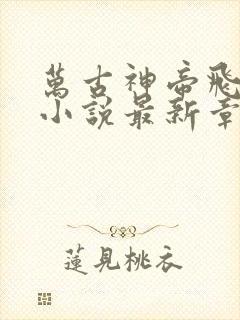 萬古神帝飛
小說最新章
蓮見桃衣